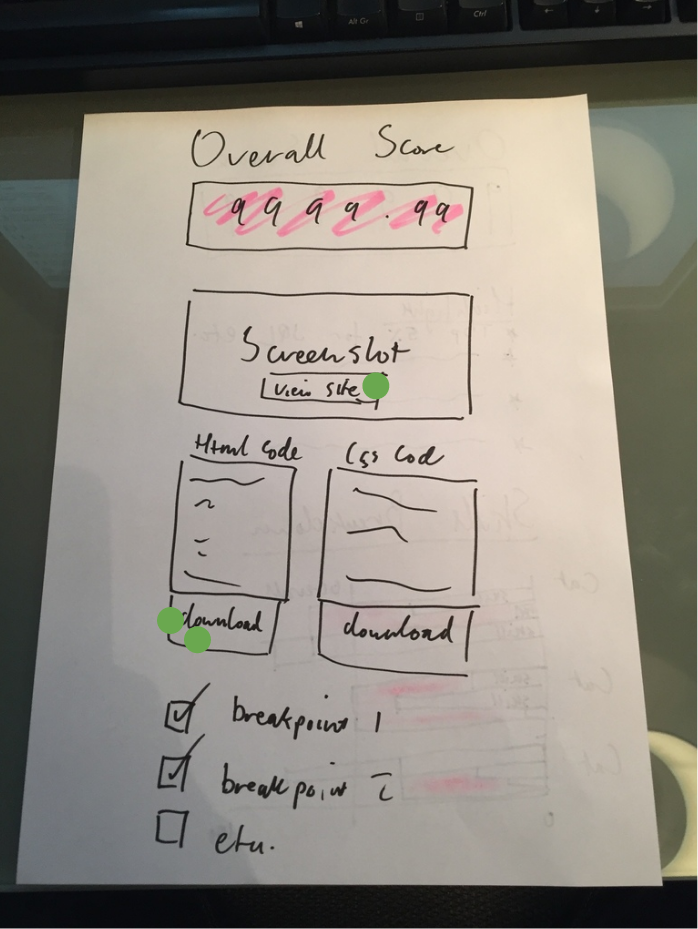 Alt Gr
Ctrl
Overall Score
9999.99
Screenshot
View site
Html Code
Css Cod
download
download
breakpoint 1
breakpoint 2
etc.